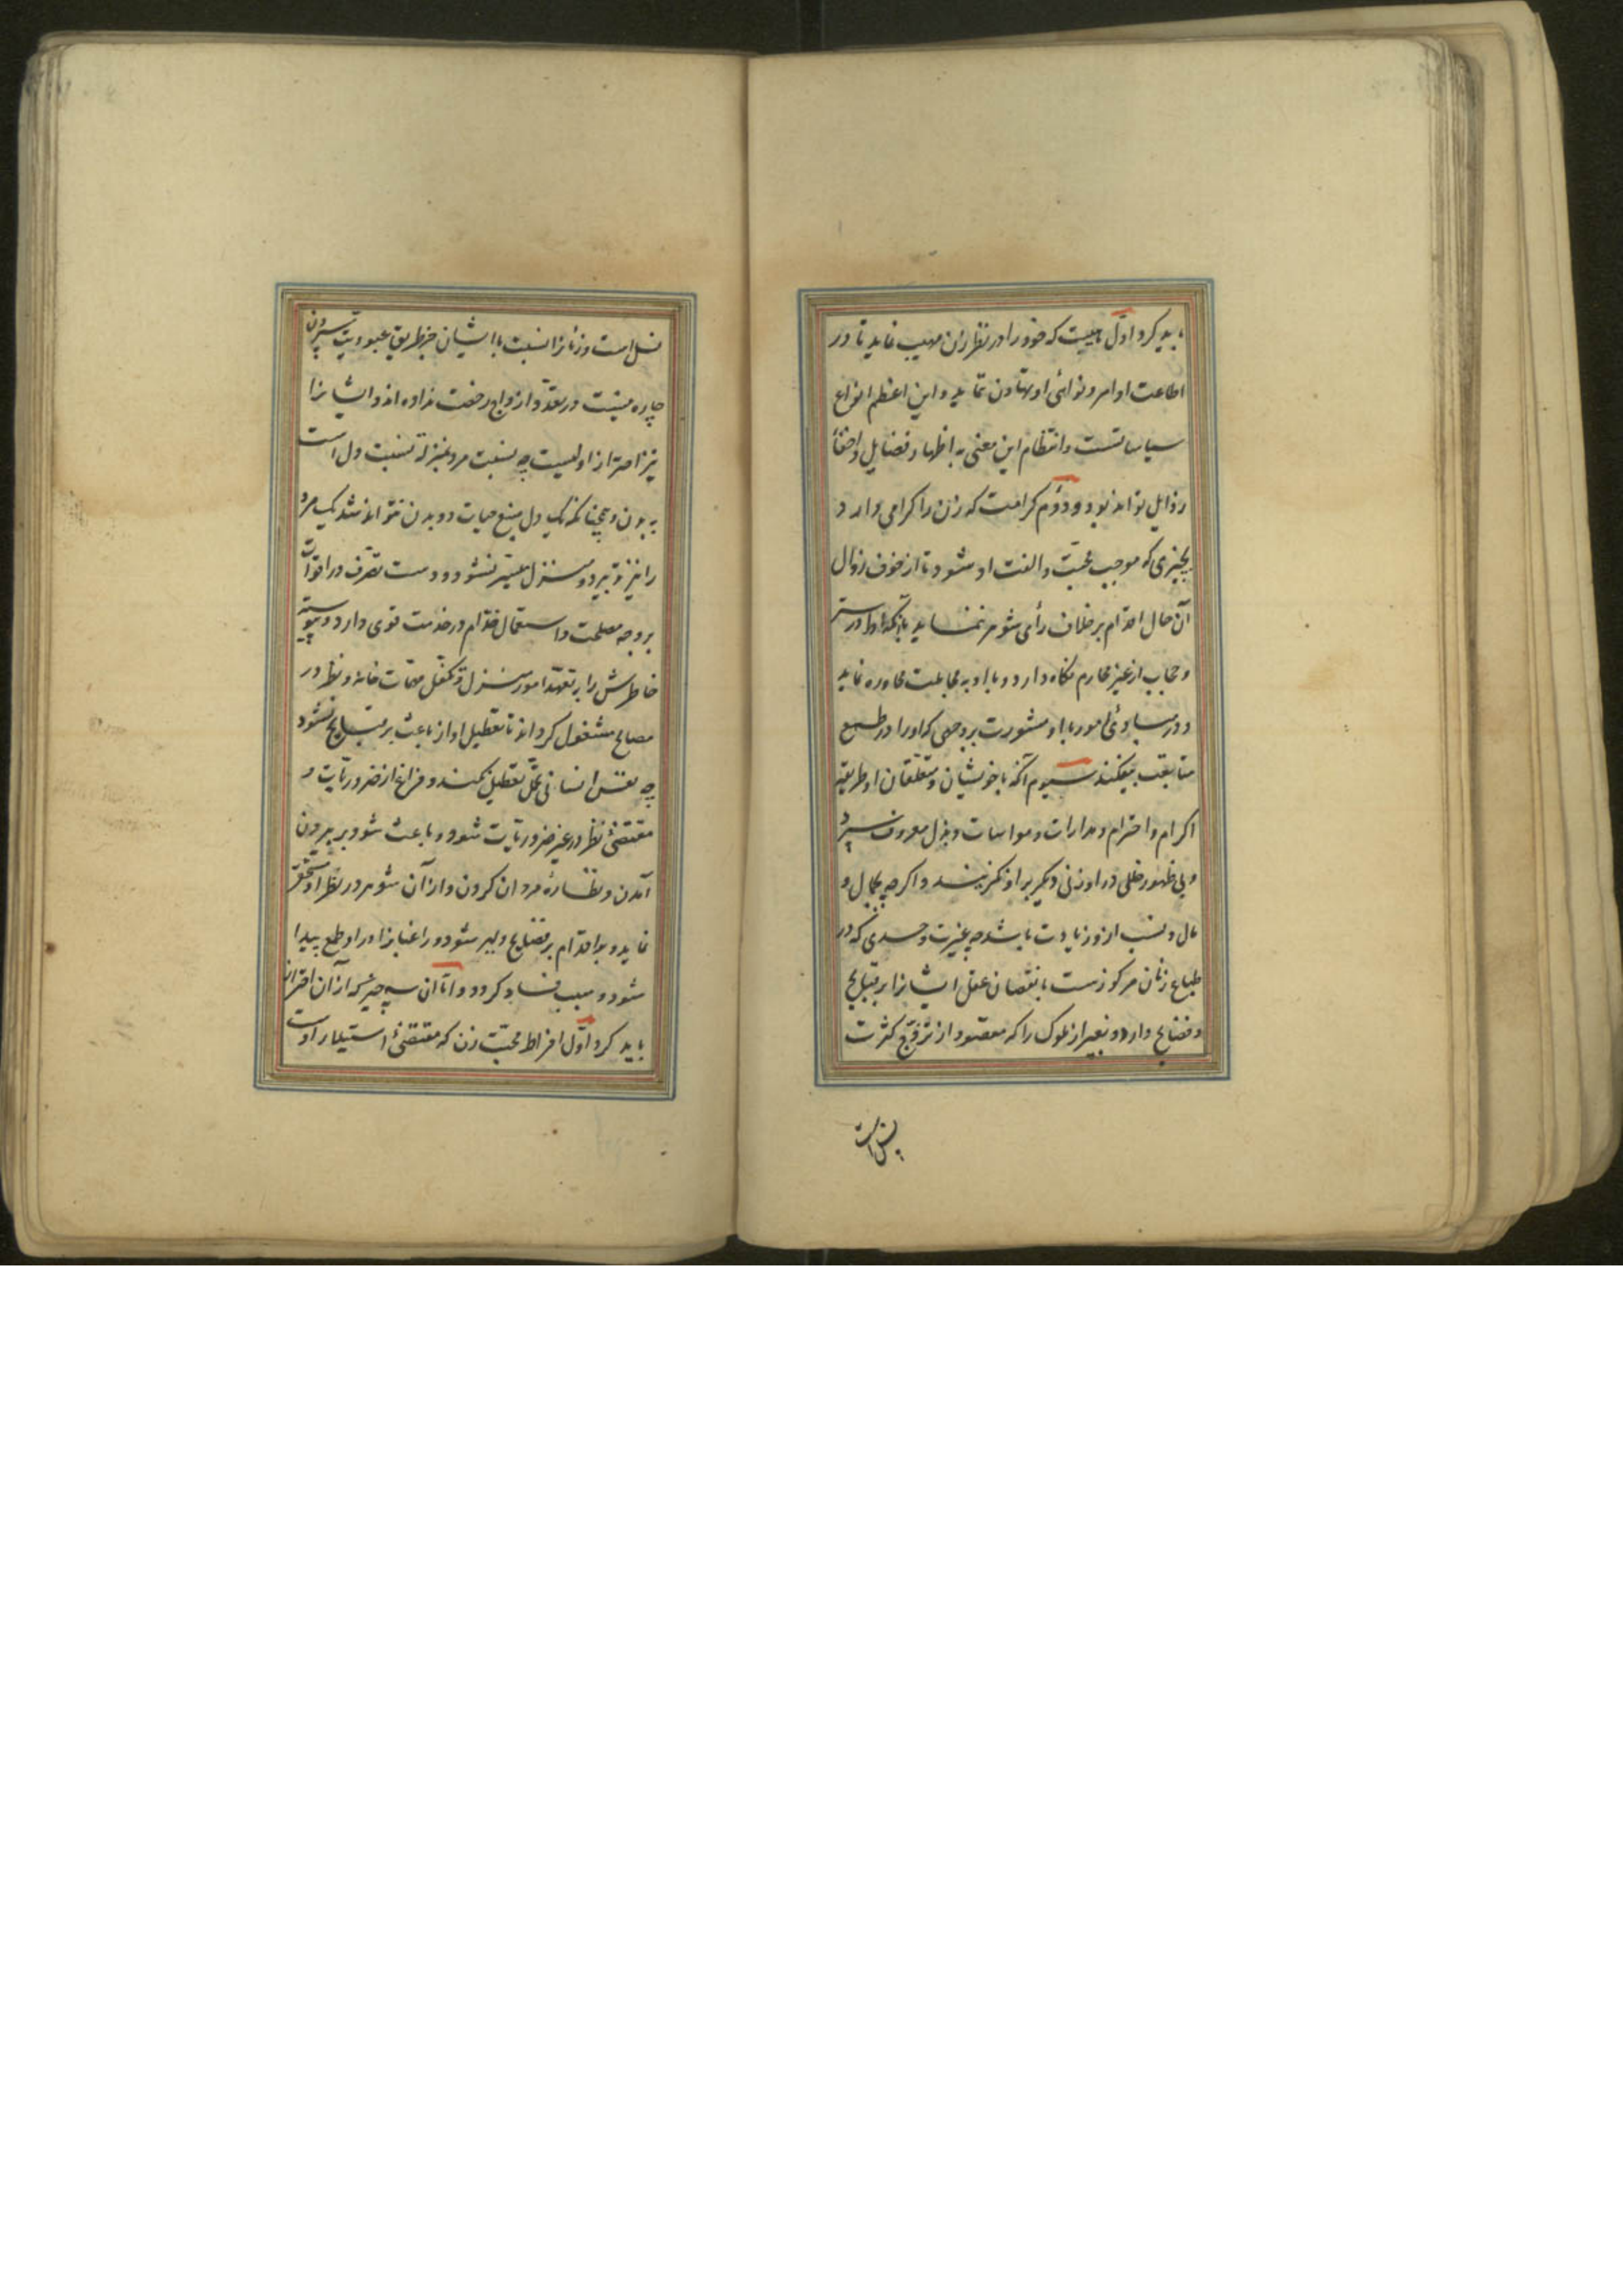 باید کرد اول هیبت که خود را در نظر زن مهیب نماید تا در
اطاعت اوامر و نواهی او تهاون ننماید و این اعظم انواع
سیاساتست و انتظام این معنی به اظهار فضایل و اخفاء
رذایل تواند بود و دوم کرامت که زن را گرامی دارد
بچیزی که موجب محبت و الفت او شود تا از خوف زوال
آن حال اقدام بر خلاف رأی شوهر ننماید با آنکه او را در ستر
و حجاب از غیر محارم نگاه دارد و با او به مجاملت محاوره نماید
و در مبادئ امور با او مشورت بر وجهی که او را در طمع
متابعت نیفکند سیوم آنکه با خویشان و متعلقان او طریقه
اکرام و احترام و مدارات و مواسات و بذل معروف سپرد
و بی ظهور خللی در او زنی دیگر بر او نگزیند و اگرچه بجمال و
مال و نسب ازو زیادت باشد چه غیرت و حسدی که در
طباع زنان مرکوزست با نقصان عقل ایشانرا بر قبایح
و فضایح دارد و بغیر از ملوک را که مقصود از تزوج کثرت
نسل است
نسل است و زنانرا نسبت با ایشان جز طریق عبودیت سپردن
چاره نیست در تعدد ازواج رخصت نداده اند و ایشانرا
نیز احتراز اولیست چه نسبت مرد بمنزله نسبت دل است
به بدن و چنانکه یک دل منبع حیات دو بدن نتواند شد یک مرد
را نیز تدبیر دو منزل میسر نشود و دست تصرف در اقوات
بر وجه مصلحت و استعمال خدام در خدمت قوی دارد و پیوسته
خاطرش را به تعهد امور منزل و تکفل مهمات خانه و نظر در
مصالح مشغول گرداند تا تعطیل او را باعث بر قبایح نشود
چه نفس انسانی تحمل تعطیل نکند و فراغ از ضروریات
مقتضئ نظر در غیر ضروریات شود و باعث شود بر بیرون
آمدن و نظاره مردان کردن و از آن شوهر در نظر او مستحقر
نماید و بر اقدام بر فضایح دلیر شود و راغبانرا در او طمع پیدا
شود و سبب فساد گردد و اما آن سه چیز که از آن احتراز
باید کرد اول افراط محبت زن که مقتضئ استیلاء اوست